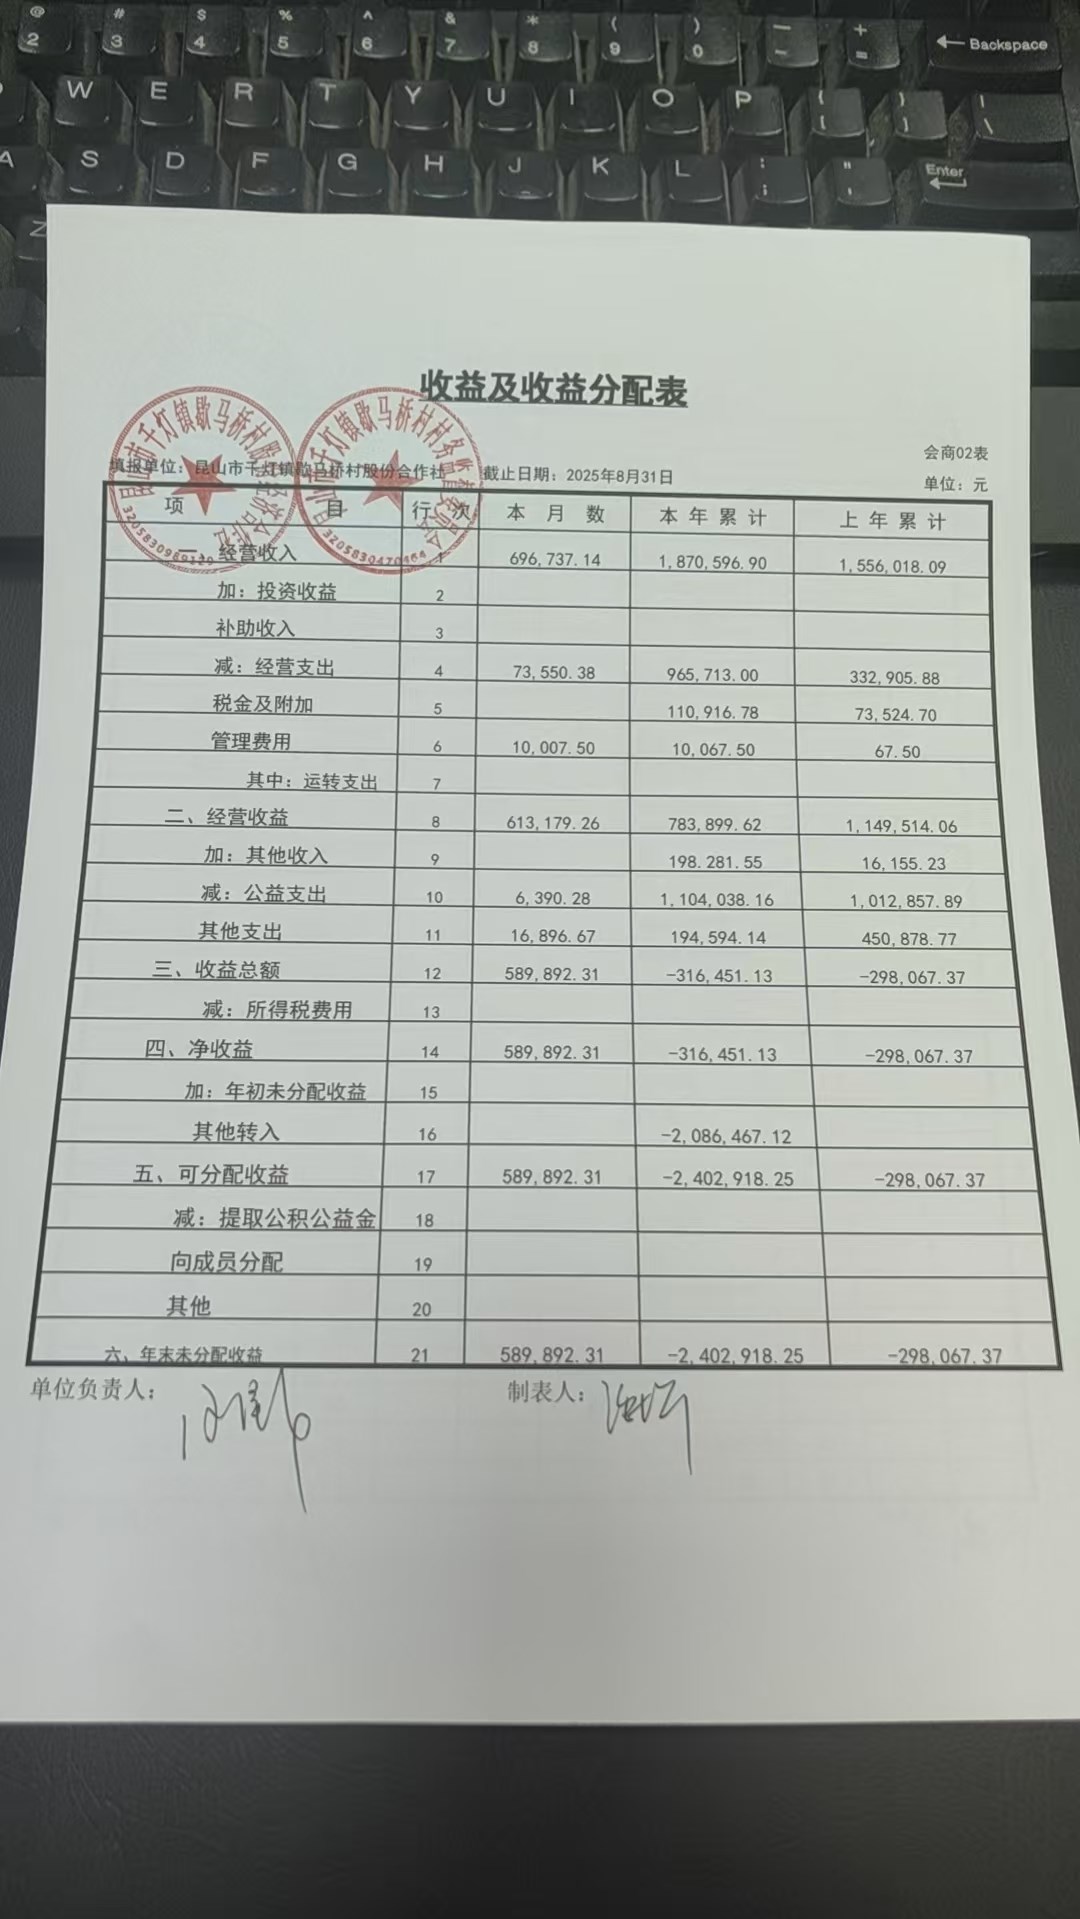 @ # $ % ^ & * ( ) — +
2 3 4 5 6 7 8 9 0 - = Backspace
W E R T Y U I O P { }
[ ] \
A S D F G H J K L : " Enter
; '
Z
收益及收益分配表
会商02表
填报单位：昆山市千灯镇歇马桥村股份合作社 截止日期：2025年8月31日 单位：元
昆山市千灯镇歇马桥村股
3205830969129
昆山市千灯镇歇马桥村村务监督委员会
3205830470464
项 目 行 次 本 月 数 本 年 累 计 上 年 累 计
一、经营收入 1 696,737.14 1,870,596.90 1,556,018.09
加：投资收益 2
补助收入 3
减：经营支出 4 73,550.38 965,713.00 332,905.88
税金及附加 5 110,916.78 73,524.70
管理费用 6 10,007.50 10,067.50 67.50
其中：运转支出 7
二、经营收益 8 613,179.26 783,899.62 1,149,514.06
加：其他收入 9 198.281.55 16,155.23
减：公益支出 10 6,390.28 1,104,038.16 1,012,857.89
其他支出 11 16,896.67 194,594.14 450,878.77
三、收益总额 12 589,892.31 -316,451.13 -298,067.37
减：所得税费用 13
四、净收益 14 589,892.31 -316,451.13 -298,067.37
加：年初未分配收益 15
其他转入 16 -2,086,467.12
五、可分配收益 17 589,892.31 -2,402,918.25 -298,067.37
减：提取公积公益金 18
向成员分配 19
其他 20
六、年末未分配收益 21 589,892.31 -2,402,918.25 -298,067.37
单位负责人： 制表人：